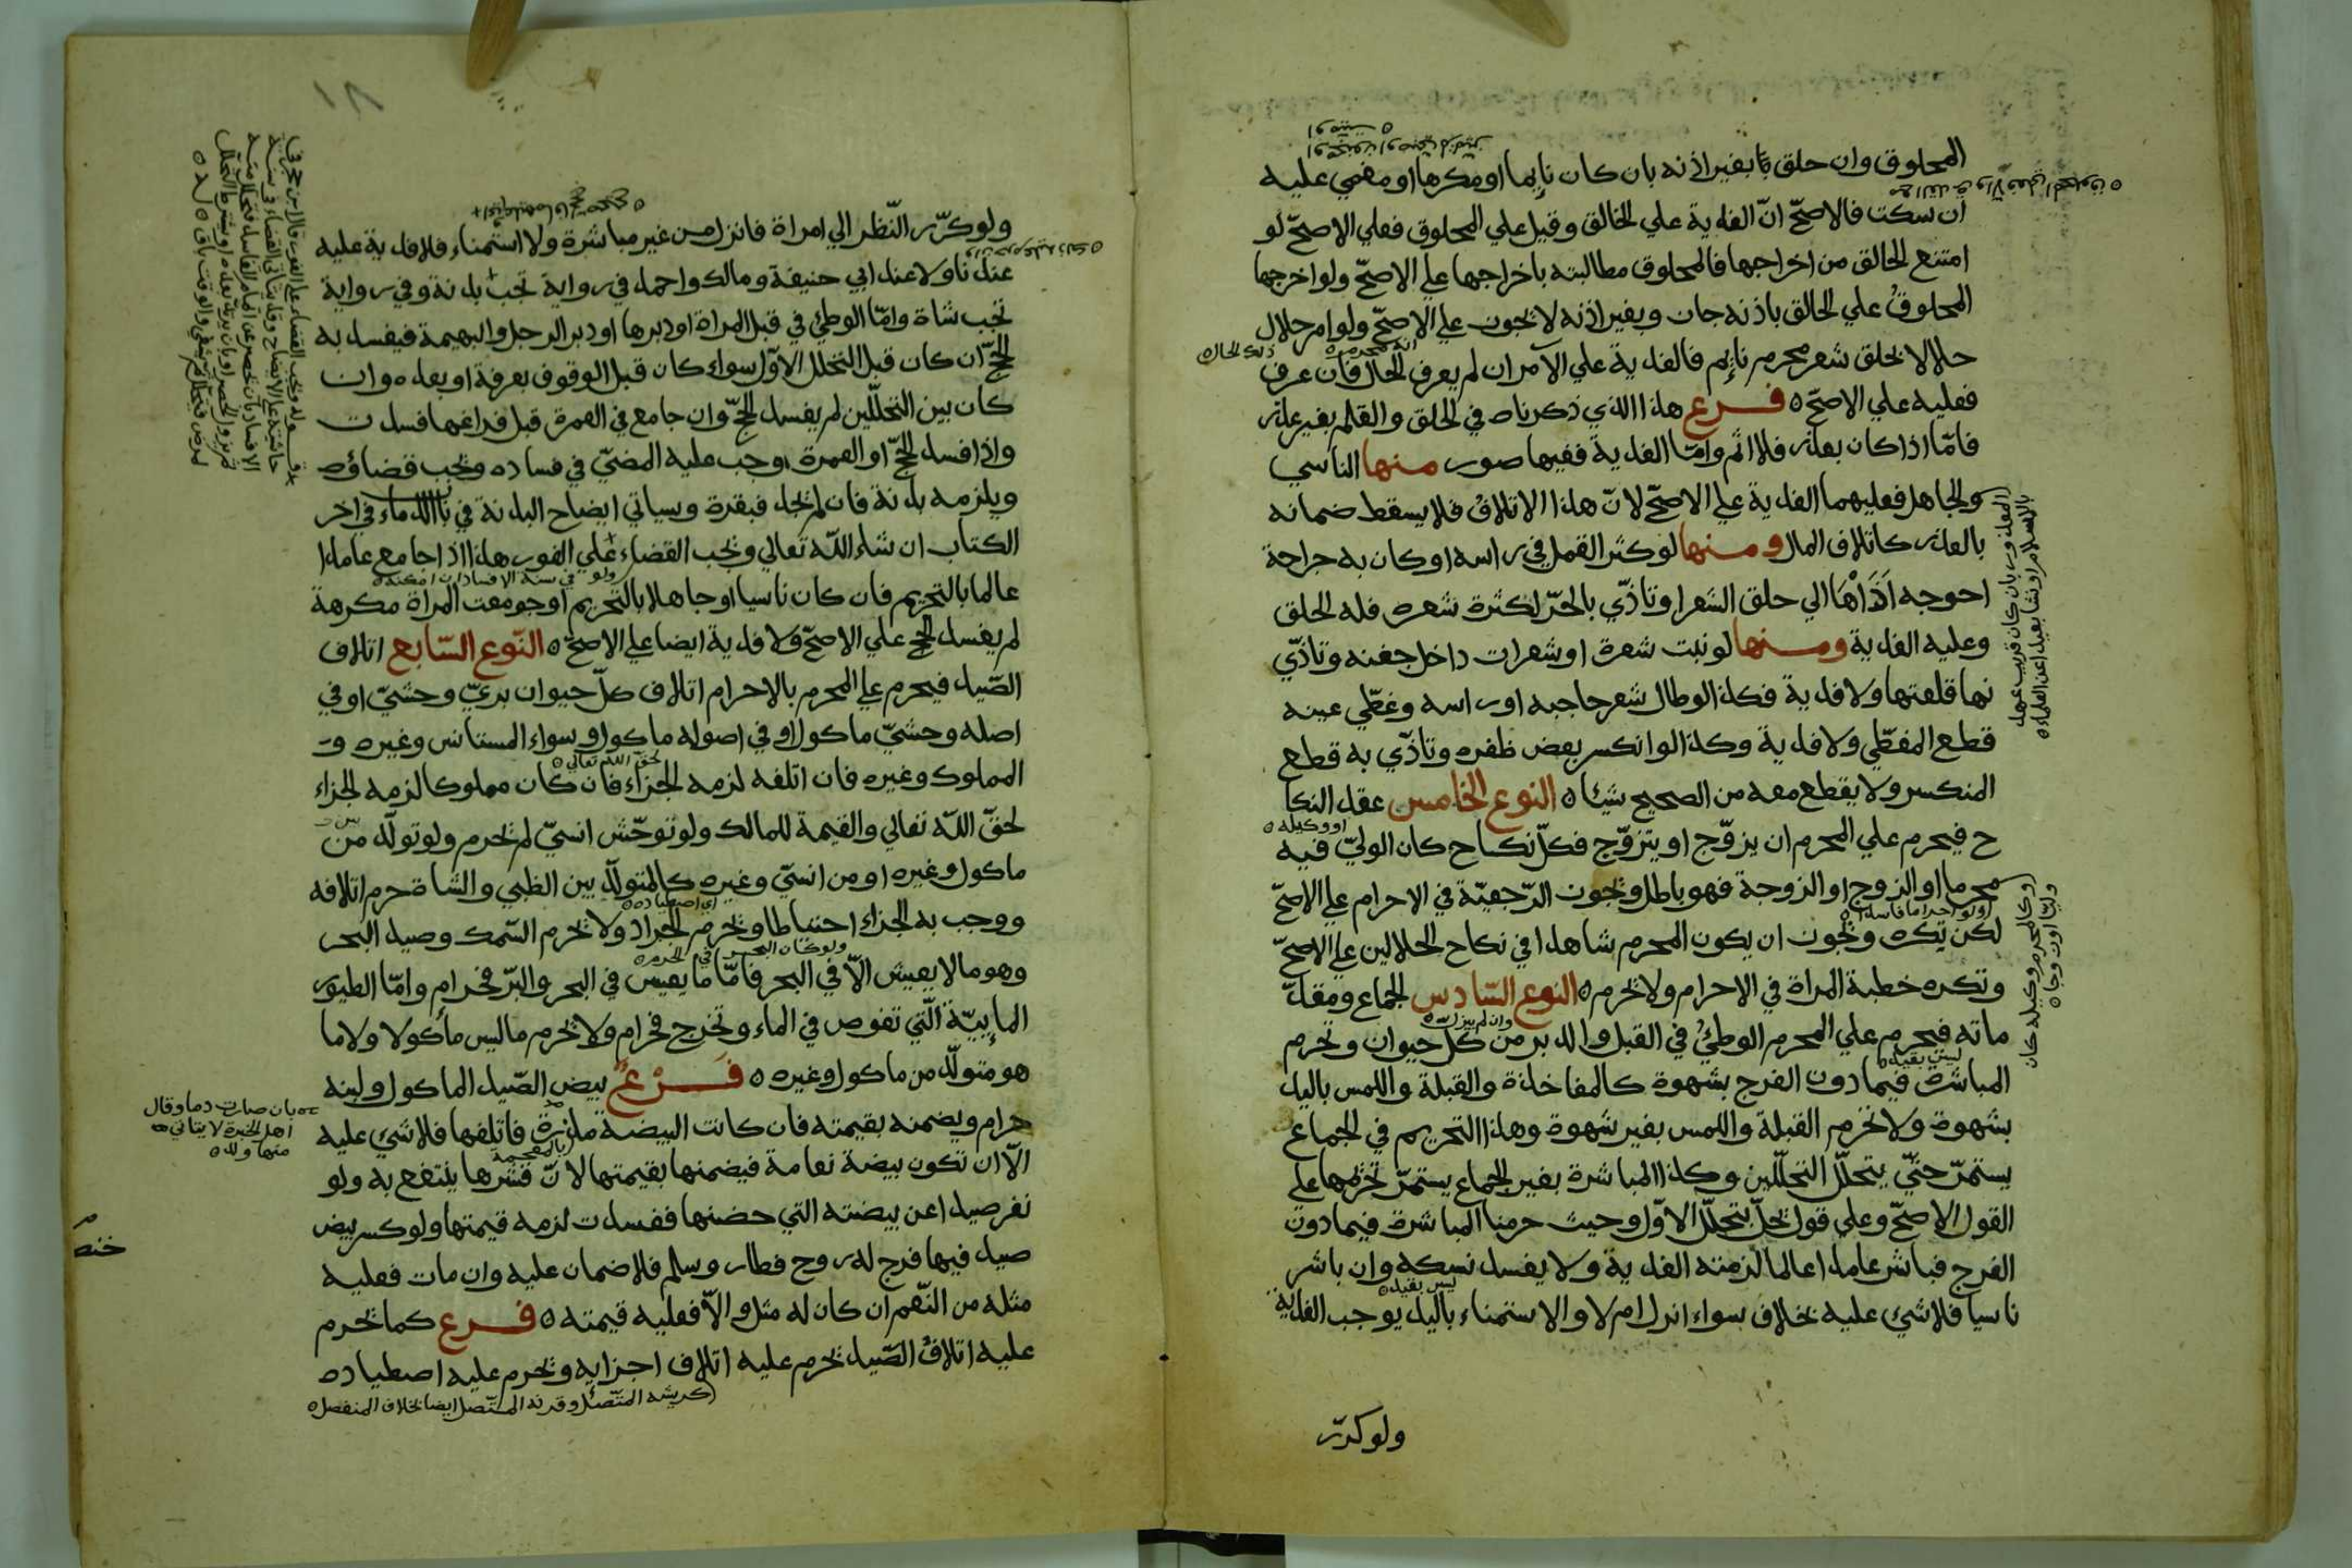 المحلوق وان حلق بغير اذنه بان كان نايما او مكرها او مغمي عليه
ان سكت فالاصحّ انّ الفدية علي الحالق وقيل علي المحلوق فعلي الاصحّ لو
امتنع الحالق من اخراجها فالمحلوق مطالبته باخراجها علي الاصحّ ولو اخرجها
المحلوق علي الحالق باذنه جاز وبغير اذنه لا يجوز علي الاصحّ ولو امر حلال
حلالا بحلق شعر محرم نايم فالفدية علي الآمر ان لم يعرف الحال فان عرف
فعليه علي الاصحّ ه فرع هذا الذي ذكرناه في الحلق والقلم بغير عذر
فامّا اذا كان بعذر فلا اثم وامّا الفدية ففيها صور منها الناسي
والجاهل فعليهما الفدية علي الاصحّ لانّ هذا الاتلاف فلا يسقط ضمانه
بالعذر كاتلاف المال ومنها لو كثر القمل في راسه او كان به جراحة
احوجه اَذَاهَا الي حلق الشعر او تاذّي بالحرّ لكثرة شعره فله الحلق
وعليه الفدية ومنها لو نبت شعرة او شعرات داخل جفنه وتاذّي
بها قلعتها ولا فدية فكذا لو طال شعر حاجبه او راسه وغطّي عينه
قطع المغطّي ولا فدية وكذا لو انكسر بعض ظفره وتاذّي به قطع
المنكسر ولا يقطع معه من الصحيح شيئا ه النوع الخامس عقد النكا
ح فيحرم علي المحرم ان يزوّج او يتزوّج فكلّ نكاح كان الوليّ فيه
محرما او الزوج او الزوجة فهو باطل وتجوز الرّجعيّة في الاحرام علي الاصحّ
لكن تكره ويجوز ان يكون المحرم شاهدا في نكاح الحلالين علي الاصحّ
وتكره خطبة المراة في الاحرام ولا تحرم ه النوع السّادس الجماع ومقدّ
ماته فيحرم علي المحرم الوطئ في القبل والدبر من كلّ حيوان وتحرم
المباشرة فيما دون الفرج بشهوة كالمفاخذة والقبلة واللمس باليد
بشهوة ولا تحرم القبلة واللمس بغير شهوة وهذا التحريم في الجماع
يستمرّ حتّي يتحلّل التحلّلين وكذا المباشرة بغير الجماع يستمرّ تحريمها علي
القول الاصحّ وعلي قول تحلّ بتحلّل الاوّل وحيث حرمنا المباشرة فيما دون
الفرج فباشر عامدا عالما لزمته الفدية ولا يفسد نسكه وان باشر
ناسيا فلا شيء عليه بخلاف سواء انزل ام لا والاستمناء باليد يوجب الفدية
ولو كرّر
ولو كرّر النّظر الي امراة فانزل من غير مباشرة ولا استمناء فلا فدية عليه
عندنا ولا عند ابي حنيفة ومالك واحمد في رواية تجب بدنة وفي رواية
تجب شاة وامّا الوطئ في قبل المراة او دبرها او دبر الرجل والبهيمة فيفسد به
الحجّ ان كان قبل التحلل الاوّل سواء كان قبل الوقوف بعرفة او بعده وان
كان بين التحلّلين لم يفسد الحجّ وان جامع في العمرة قبل فراغها فسدت
واذا فسد الحجّ او العمرة وجب عليه المضيّ في فساده ويجب قضاؤه
ويلزمه بدنة فان لم يجد فبقرة وسياتي ايضاح البدنة في باب الدماء في اخر
الكتاب ان شاء اللّه تعالي ويجب القضاء علي الفور هذا اذا جامع عامدا
عالما بالتحريم فان كان ناسيا او جاهلا بالتحريم او جومعت المراة مكرهة
لم يفسد الحج علي الاصحّ ولا فدية ايضا علي الاصحّ ه النّوع السّابع اتلاف
الصّيد فيحرم علي المحرم بالاحرام اتلاف كلّ حيوان بريّ وحشيّ او في
اصله وحشيّ ماكول او في اصوله ماكول وسواء المستانس وغيره و
المملوك وغيره فان اتلفه لزمه الجزاء فان كان مملوكا لزمه الجزاء
لحقّ اللّه تعالي والقيمة للمالك ولو توحّش انسيّ لم يحرم ولو تولّد من
ماكول وغيره او من انسيّ وغيره كالمتولّد بين الظبي والشاة حرم اتلافه
ووجب به الجزاء احتياطا ويحرم الجراد ولا يحرم السّمك وصيد البحر
وهو ما لا يعيش الّا في البحر فامّا ما يعيش في البحر والبرّ فحرام وامّا الطيور
المايييّة الّتي تغوص في الماء وتخرج فحرام ولا يحرم ما ليس مأكولا ولا ما
هو متولّد من ماكول وغيره ه فَرْعٌ بيض الصّيد الماكول ولبنه
حرام ويضمنه بقيمته فان كانت البيضة مذرة فاتلفها فلا شيء عليه
الّا ان تكون بيضة نعامة فيضمنها بقيمتها لانّ قشرها ينتفع به ولو
نفر صيدا عن بيضته التي حضنها ففسدت لزمه قيمتها ولو كسر بيض
صيد فيها فرخ له روح فطار وسلم فلا ضمان عليه وان مات فعليه
مثله من النّعم ان كان له مثل والّا فعليه قيمته ه فرع كما يحرم
عليه اتلاف الصّيد يحرم عليه اتلاف اجزايه ويحرم عليه اصطياده
كريشه المتّصل وقرنه المتّصل ايضا بخلاف المنفصل ه
بان صارت دما وقال
اهل الخبرة لا يتاتي
منها ولد ه